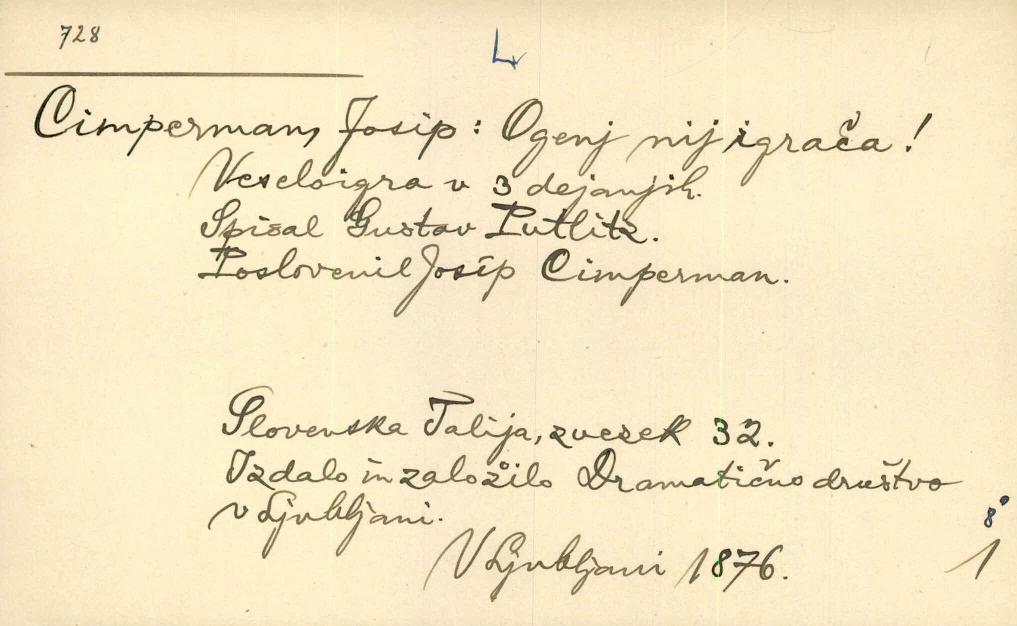 728
L
Cimperman, Josip: Ogenj nij igrača!
Veseloigra v 3 dejanjih.
Spisal Gustav Putlitz.
Poslovenil Josip Cimperman.
Slovenska Talija, zvezek 32.
Izdalo in založilo Dramatično društvo
v Ljubljani.
8°
V Ljubljani 1876.
1